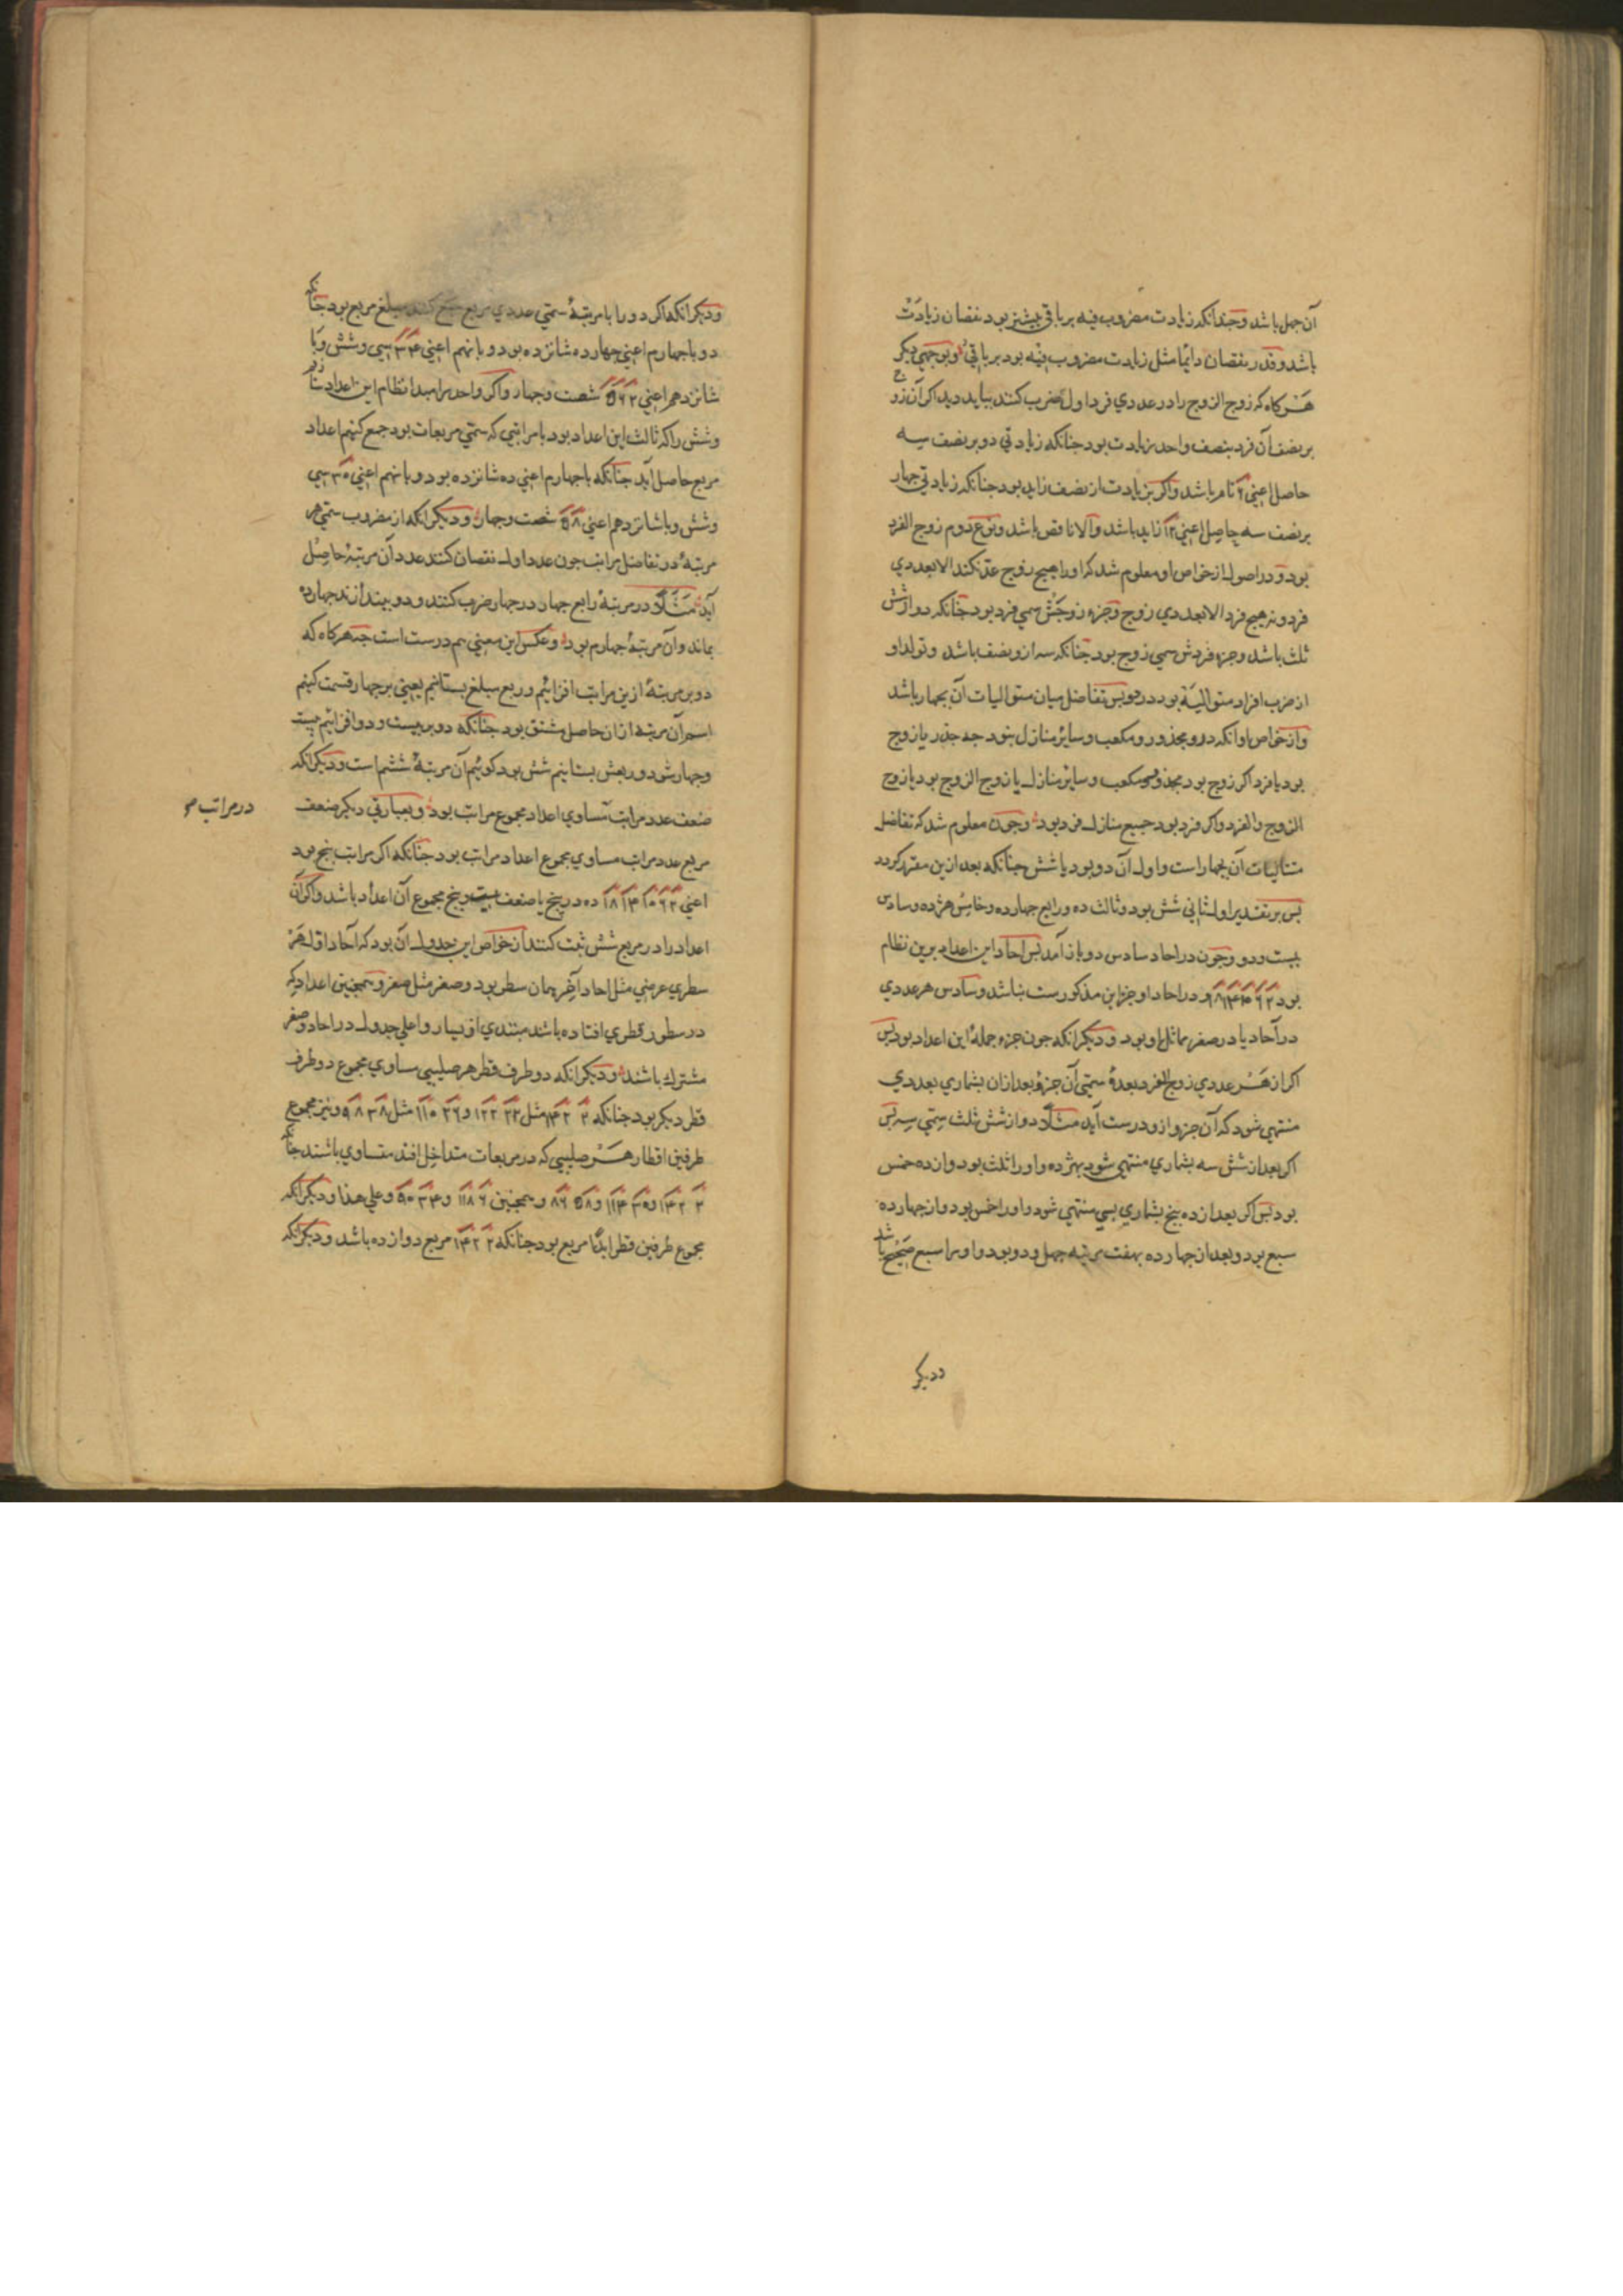 آن جهل باشد وچندانکه زیادت مضروب فیه بر باقی بیشتر بود نقصان زیادت
باشد وقدر نقصان دائما مثل زیادت مضروب فیه بود بر باقی وبوجهی دیکر
هر کاه که زوج الزوج را در عددی فرد اول ضرب کنند بباید دید اکر آن زوج
بر نصف آن فرد بنصف واحد زیادت بود جنانکه زیادتی دو بر نصف سه
حاصل اعنی ۶ تام باشد واکر بزیادت از نصف زاید بود جنانکه زیادتی جهار
بر نصف سه حاصل اعنی ۱۲ زاید باشد والا ناقص باشد ونوع دوم زوج الفرد
بود ودر اصول از خواص او معلوم شد که او را هیچ زوج عد نکند الا بعددی
فرد ونه هیچ فرد الا بعددی زوج وجزء زوجش سمی فرد بود جنانکه دو از شش
ثلث باشد وجزء فردش سمی زوج بود جنانکه سه ازو نصف باشد وتولد او
از ضرب افراد متوالیة بود در دو پس تفاضل میان متوالیات آن بجهار باشد
واز خواص او آنکه درو مجذور ومکعب وسایر منازل نبود جه جذر یا زوج
بود یا فرد اکر زوج بود مجذور ومکعب وسایر منازل یا زوج الزوج بود یا زوج
الزوج والفرد واکر فرد بود جمیع منازل فرد بود وجون معلوم شد که تفاضل
متتالیات آن بجهار است واول آن دو بود یا شش جنانکه بعد ازین مقرر کردد
پس بر تقدیر اول ثانی شش بود وثالث ده ورابع جهارده وخامس هژده وسادس
بیست ودو وجون در احاد سادس دو باز آمد پس احاد این اعداد برین نظام
بود ۲ ۶ ۱۰ ۱۴ ۱۸ ودر احاد او جز این مذکور ست نباشد وسادس هر عددی
در آحاد یا در صفر مماثل او بود ودیکر انکه جون جزء جملهٔ این اعداد بود پس
اکر از هر عددی زوج الفرد بعدهٔ سمّی آن جزو بعد ازان بشماری بعددی
منتهی شود که آن جزو ازو درست آید مثلا دو از شش ثلث ستمی سه پس
اکر بعد از شش سه بشماری منتهی شود بهژده واو را ثلث بود واز ده خمس
بود پس اکر بعد از ده پنج بشماری بسی منتهی شود واو را خمس بود واز جهارده
سبع بود وبعد از جهارده بهفت مرتبه جهل ودو بود واو را سبع صحیح باشد
ودیکر
ودیکر انکه اکر دو را با مرتبهٔ سمّی عددی مربع جمع کنند مبلغ مربع بود جنانکه
دو با جهارم اعنی جهارده شانزده بود وبا نهم اعنی ۳۴ سی وشش وبا
شانزدهم اعنی ۶۲ شصت وجهار واکر واحد را مبدا نظام این اعداد
وشش را که ثالث این اعداد بود با مراتبی که سمّی مربعات بود جمع کنیم اعداد
مربع حاصل آید جنانکه با جهارم اعنی ده شانزده بود وبا نهم اعنی ۳۰ سی
وشش وبا شانزدهم اعنی ۵۸ شصت وجهار ودیکر انکه از مضروب سمّی هر
مرتبهٔ در تفاضل مراتب جون عدد اول نقصان کنند عدد آن مرتبهٔ حاصل
آید مثلا در مرتبهٔ رابع جهار در جهار ضرب کنند ودو بیندازند جهارده
بماند وآن مرتبهٔ جهارم بود وعکس این معنی هم درست است جه هرکاه که
دو بر مرتبهٔ ازین مراتب افزائیم وربع مبلغ بستانیم یعنی بر جهار قسمت کنیم
اسم آن مرتبه ازان حاصل مشتق بود جنانکه دو بر بیست ودو افزائیم بیست
وجهار شود وربعش بستانیم شش بود کوئیم آن مرتبهٔ ششم است ودیکر انکه
ضعف عدد مراتب مساوی اعداد مجموع مراتب بود وبعبارتی دیکر ضعف
در مراتب
مربع عدد مراتب مساوی مجموع اعداد مراتب بود جنانکه اکر مراتب پنج بود
اعنی ۲ ۶ ۱۰ ۱۴ ۱۸ ده در پنج یا ضعف بیست وپنج مجموع آن اعداد باشد واکر آن
اعداد را در مربع شش ثبت کنند از خواص این جدول آن بود که آحاد اول هر
سطری عرضی مثل احاد آخر همان سطر بود وصفر مثل صفر وهمجنین اعداد که
در سطور قطری افتاده باشد مبتدی از یسار واعلی جدول در احاد وصفر
مشترك باشند ودیکر انکه دو طرف قطر هر صلیبی مساوی مجموع دو طرف
قطر دیکر بود جنانکه ۲ ۱۴۲ مثل ۲۲ ۱۲۲ و ۲۶ ۱۱۰ مثل ۳۸ ۹۸ ونیز مجموع
طرفین اقطار هر صلیبی که در مربعات متداخل افتد متساوی باشند جنانکه
۲ ۱۴۲ و ۳۰ ۱۱۴ و ۵۸ ۸۶ وهمجنین ۶ ۱۱۸ و ۳۴ ۹۰ وعلی هذا ودیکر انکه
مجموع طرفین قطر ابدا مربع بود جنانکه ۲ ۱۴۲ مربع دوازده باشد ودیکر انکه